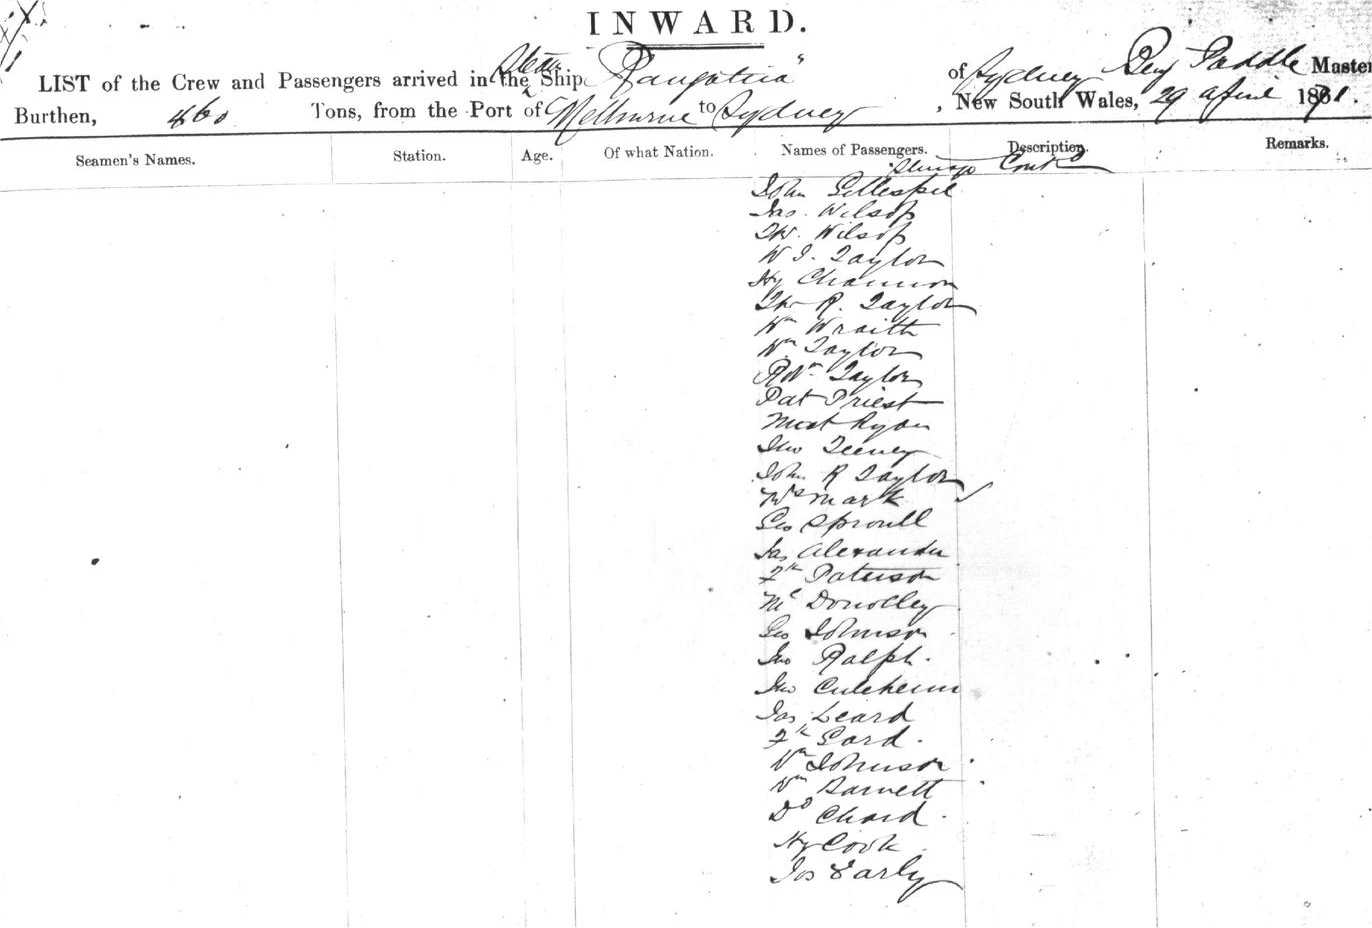 INWARD.
LIST of the Crew and Passengers arrived in the Steam Ship "Rangatira" of Sydney Benj Paddle Master
Burthen, 460 Tons, from the Port of Melbourne to Sydney, New South Wales, 29 April 1871.
Seamen's Names. Station. Age. Of what Nation. Names of Passengers. Description. Remarks.
Steerage Contd
John Gillespie
Jas. Wilson
W. Wilson
W J. Taylor
Hy Channon
R. Taylor
Wm Wraith
Wm Taylor
Taylor
Pat Priest
Ryan
Jno Feeney
John R Taylor
Mark
Geo Sproull
Jas Alexander
Fk Paterson
Ml Donolley
Geo Johnson
Jno Ralph.
Jno
Jas Leard
Fk Gard.
Wm Johnson
Wm Barnett
Dd Chard.
Hy Cook
Jos Early